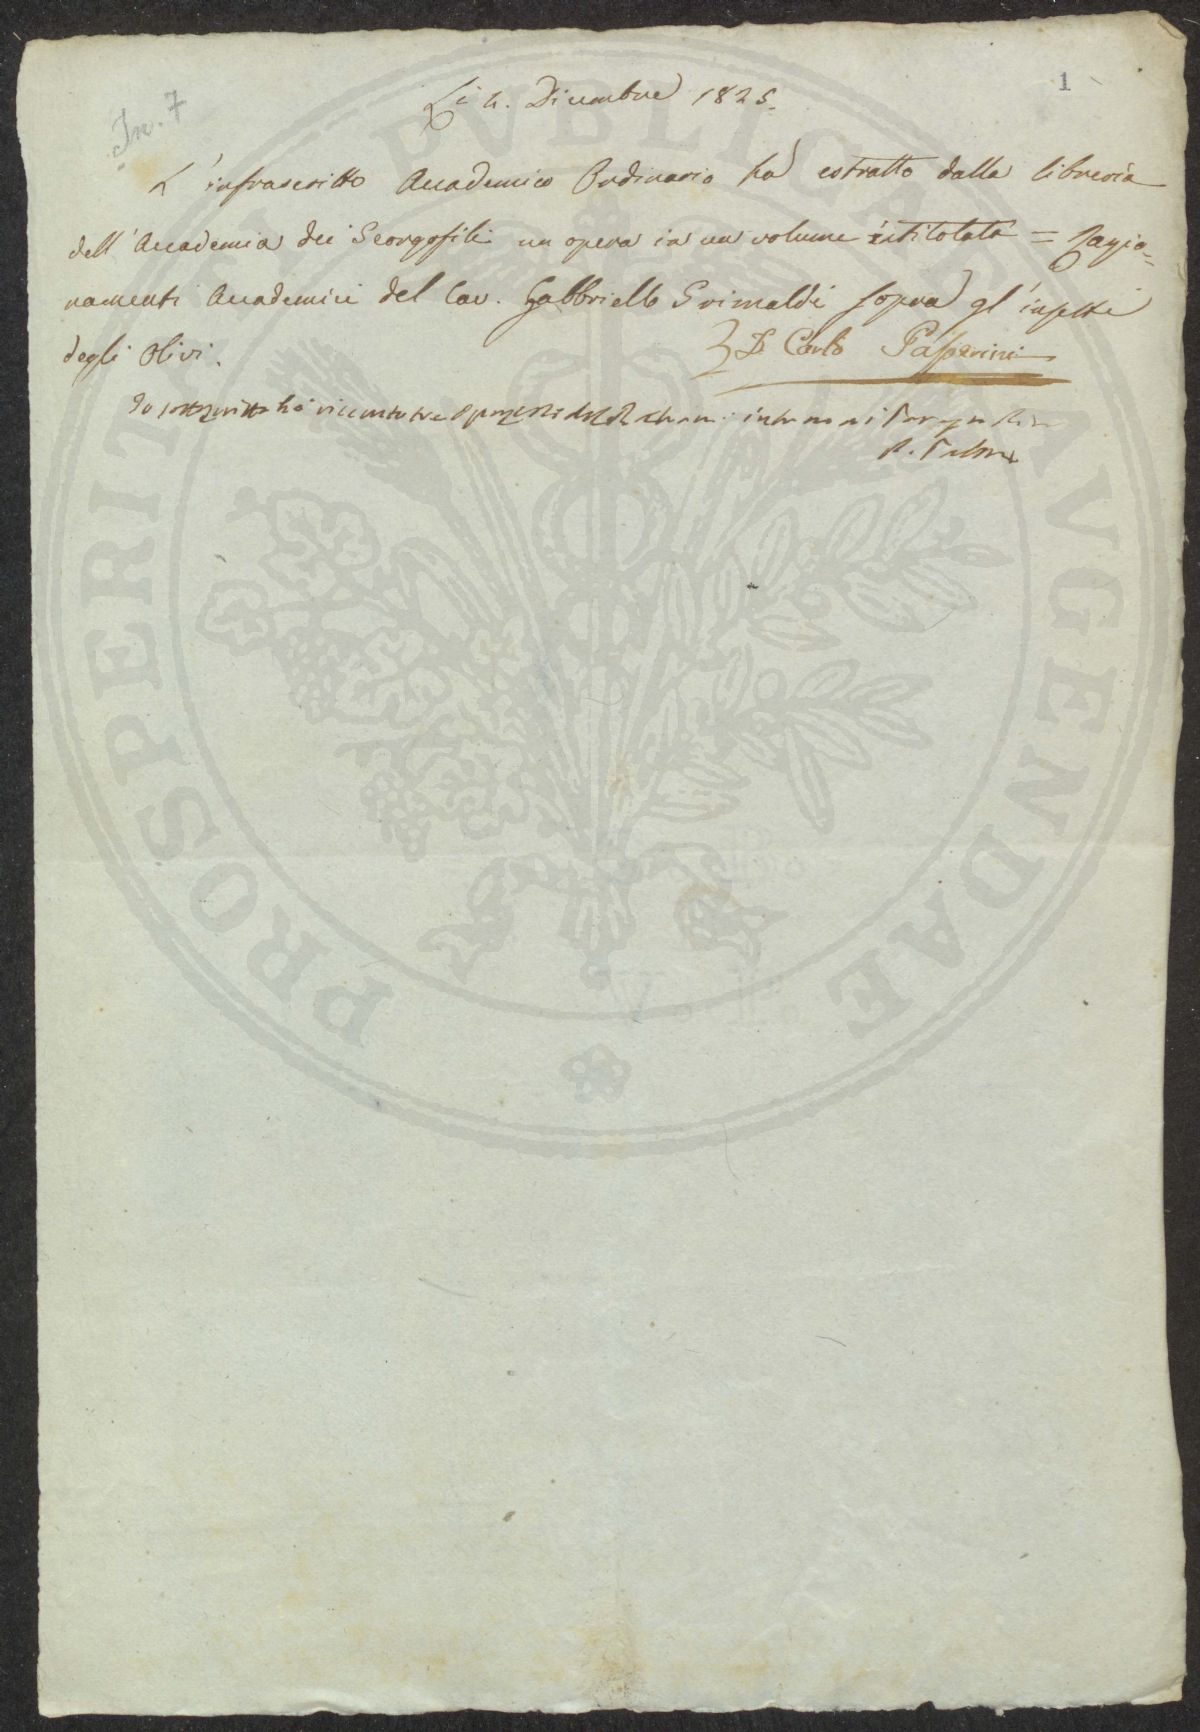 1
In. 7
Li 4. Dicembre 1825.
L'infrascritto Accademico Ordinario ha estratto dalla libreria
dell'Accademia dei Georgofili un opera in un volume intitolata = Ragio=
namenti Accademici del Cav. Gabbriello Grimaldi sopra gl'insetti
degli olivi.
D. Carlo Passerini
Io sottoscritto ho ricevuto
PROSPERITATI PVBLICAE AVGENDAE